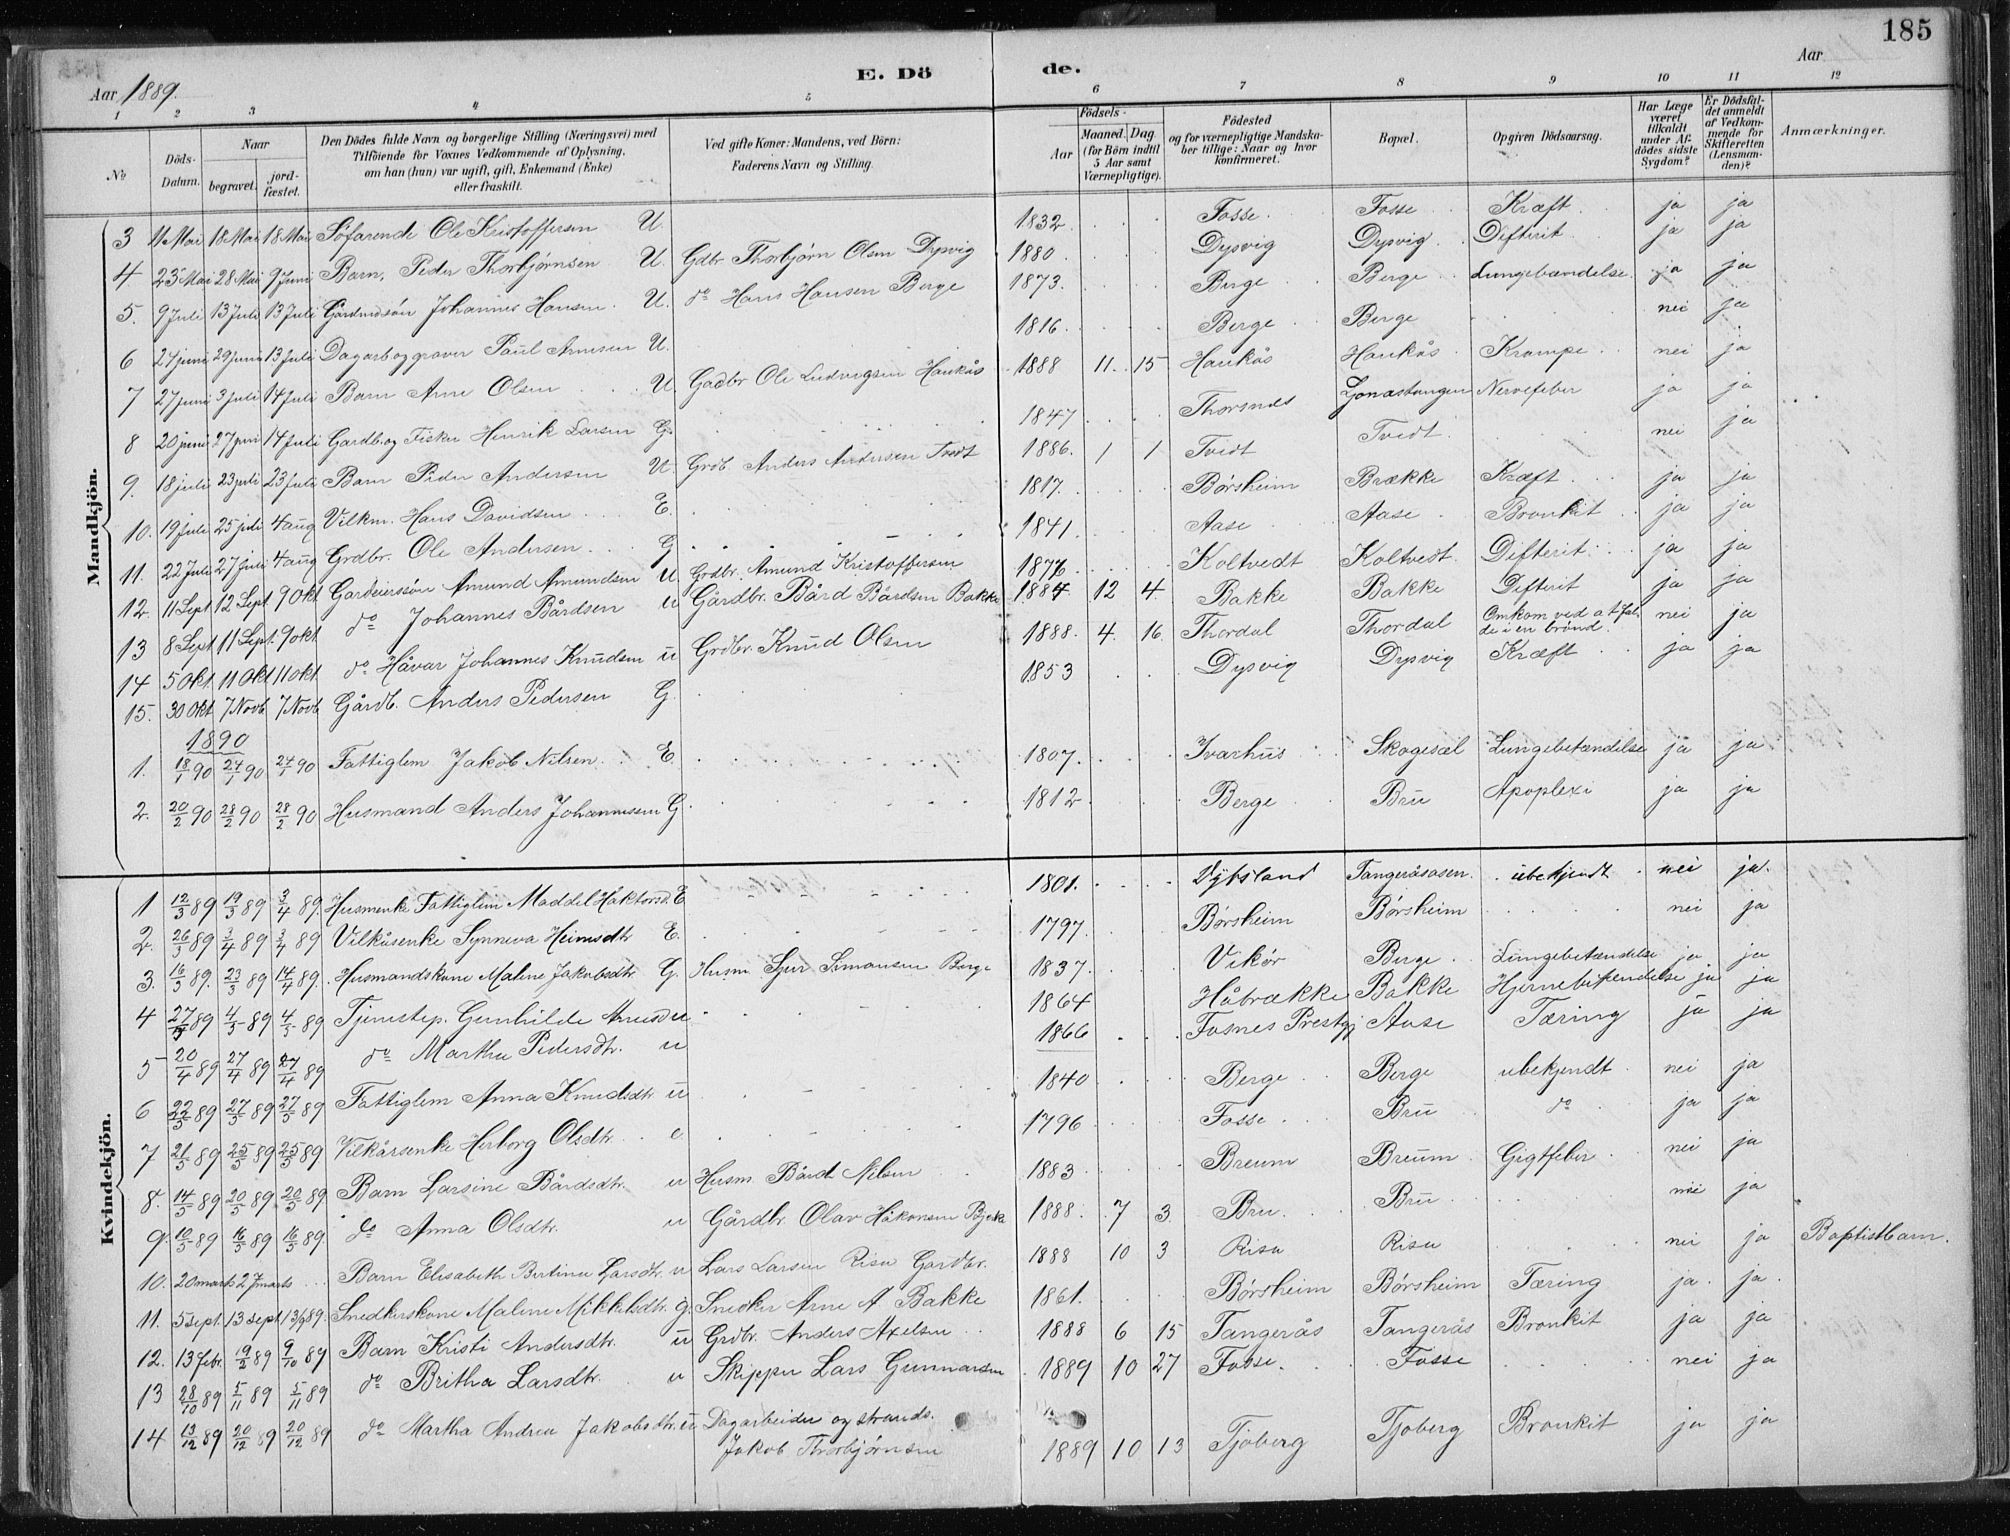 185
Aar 1889.
E. Dö
de.
Aar
1 2 3 4 5 6 7 8 9 10 11 12
№
Döds-Datum.
Naar
begravet.
jord-fæstet.
Den Dödes fulde Navn og borgerlige Stilling (Næringsvei) med
Tilföiende for Voxnes Vedkommende af Oplysning,
om han (hun) var ugift, gift, Enkemand (Enke)
eller fraskilt.
Ved gifte Koner: Mandens, ved Börn:
Faderens Navn og Stilling.
Födsels-
Aar
Maaned. Dag
(for Börn indtil
5 Aar samt
Værnepligtige).
Födested
og for værnepligtige Mandska-
ber tillige: Naar og hvor
konfirmeret.
Bopæl.
Opgiven Dödsaarsag.
Har Læge
været
tilkaldt
under Af-
dödes sidste
Sygdom?
Er Dödsfal-
det anmeldt
af Vedkom-
mende for
Skifteretten
(Lensman-
den)?
Anmærkninger.
Mandkjön.
3 11 Mai 18 Mai 18 Mai Söfarende Ole Kristoffersen U. 1832 Fosse Fosse Kræft ja ja
4 23 Mai 28 Mai 9 Juni Barn, Peder Thorbjørnsen U. Gdbr Thorbjørn Olsen Dysvig 1880 Dysvig Dysvig Difterit ja ja
5. 9 Juli 13 Juli 13 Juli Gårdmdsön Johannes Hansen U. do Hans Hansen Berge 1873 Berge Berge Lungebændelse ja ja
6 24 juni 29 juni 13 Juli Dagarb og graver Paul Arnesen U. 1816 Berge Berge nei ja
7 27 juni 3 juli 14 Juli Barn Arne Olsen U Gadbr Ole Ludvigsen Haukås 1888 11 15 Haukås Haukås Krampe nei ja
8 20 juni 27 juni 14 Juli Gardb. og Fisker Henrik Larsen G. 1847 Thorsnes Nervefeber ja ja
9. 18 juli 23 juli 23 Juli Barn Peder Andersen U. Grdb. Anders Andersen Tvedt 1886 1 1 Tvedt Tvedt nei ja
10. 19 juli 25 juli 4 aug Vilkm. Hans Davidsen E. 1817 Børsheim Brække Kræft ja ja
11. 22 Juli 27 juli 4 aug Grdbr. Ole Andersen G 1841 Aase Aase Bronkit ja ja
12. 11 Sept 12 Sept 9 Okt Gardeierssön Amund Amundsen u Grdbr. Amund Kristoffersen 1876 Koltvedt Koltvedt Difterit ja ja
13 8 Sept 11 Sept 9 okt do Johannes Bårdsen u Gårdbr. Bård Bårdsen Bakke 1884 12 4 Bakke Bakke Difterit ja ja
14 5 Okt. 11 Okt 11 okt do Håvar Johannes Knudsen u Grdbr. Knud Olsen 1888 4 16 Thordal Thordal Omkom ved at fal-
de i en brønd. nei ja
15. 30 Okt 7 Novb 7 Novb Gårdb. Anders Pedersen G. 1853 Dysvig Dysvig Kræft ja ja
1890
1. 18/1 90 24/1 90 24/1 90 Fattiglem Jakob Nilsen E. 1807 Ivarhus Skogesæl Lungebetændelse ja ja
2. 20/2 90 28/2 90 28/2 90 Husmand Anders Johannessen G. 1812 Berge Bru Apoplexi ja ja
Kvindekjön.
1 12/3 89 19/3 89 3/4 89. Husmenke Fattiglem Maddel Håktorsd. E 1801. Dybsland Tangeråsasen ubekjendt nei ja.
2. 26/3 89 3/4 89 3/4 89 Vilkåsenke Synneva Heimsdtr E. 1797 Børsheim Børsheim nei ja
3. 16/3 89. 23/3 89 14/4 89. Husmandskone Malene Jakobsdtr G. Husm Sjur Simonsen Berge 1837 Vikør Berge Lungebetændelse ja ja
4 27/ 89 4/5 89 4/5 89 Tjenestep. Gunhilde u 1864 Håbrække Bakke Hjernebetændelse ja ja
5 20/4 89 27/4 89 27/4 89 do Martha Pedersdtr. u 1866 Fosnes Prestgj Aase Tæring ja ja
6 22/5 89 27/5 89 27/5 89 Fattiglem Anna Knudsdtr u 1840 Berge Berge ubekjendt nei ja
7 21/5 89 25/5 89 25/5 89 Vilkårsenke Herborg Olsdtr. e. 1796 Fosse Bru do ja ja
8. 14/5 89 20/5 89 20/5 89 Barn Larsine Bårdsdtr. u Husm. Bårdt Nilsen 1883 Breum Breum Gigtfeber nei ja
9. 10/5 89 16/5 89 16/5 89. do Anna Olsdtr. u Gårdbr. Olav Håkonsen 1888 7 3 Bru Bru nei ja
10. 20 marts 27 marts Barn Elisabeth Bertine Larsdtr. u Lars Larsen Risa Gardbr. 1888 10 3 Risa Risa nei ja Baptistbarn.
11. 5 sept. 13 sept. 13/9 89. Snedkerskone Malene Mikkelsdtr. g. Snedker Arne A Bakke 1861. Børsheim Børsheim Tæring ja ja
12. 13 febr. 19/2 89 9/10 89 Barn Kristi Andersdtr. u Grdbr. Anders Axelsen 1888 6 15 Tangerås Tangerås Bronkit ja ja
13 28/10 89 5/11 89 5/11 89 do Britha Larsdtr. u Skipper Lars Gunnarsen 1889 10 27 Fosse. Fosse nei ja
14 13/12 89 20/12 89 20/12 89 do Martha Andrea Jakobsdtr. u Dagarbeider og strands.
Jakob Thorbjørnsen 1889 10 13 Tjoberg Tjoberg Bronkit ja ja